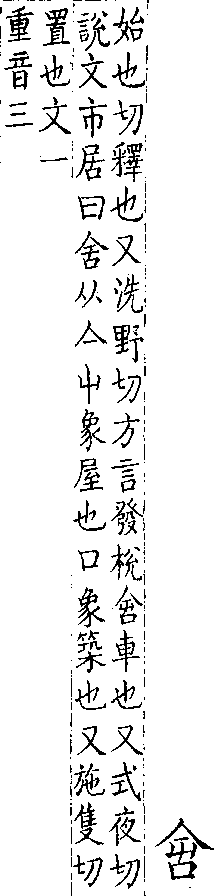 舍
始也切釋也又洗野切方言發梲舍車也又式夜切
說文市居曰舍从亼屮象屋也口象築也又施隻切
置也文一
重音三